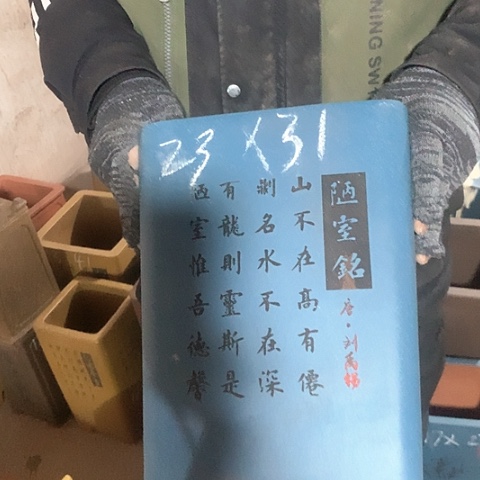 23 X 31
陋室銘
唐·刘禹锡
山不在髙有僊
則名水不在深
有龍則靈斯是
陋室惟吾德馨
NING SW